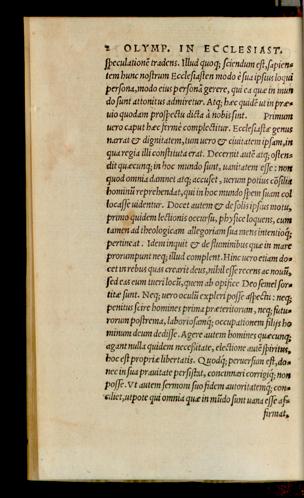 2 OLYMP. IN ECCLESIAST.
speculationẽ tradens. Illud quoq; sciendum est, sapien=
tem hunc nostrum Ecclesiasten modo è sua ipsius loqui
persona, modo eius personã gerere, qui ea quæ in mun
do sunt attonitus admiretur. Atq; hæc quidẽ ut in præ=
uio quodam prospectu dicta à nobis sint. Primum
uero caput hæc fermè complectitur. Ecclesiastæ genus
narrat & dignitatem, tum uero & ciuitatem ipsam, in
qua regia illi constituta erat. Decernit autẽ atq; osten=
dit quæcunq; in hoc mundo sunt, uanitatem esse: non
quod omnia damnet atq; accuset, uerum potius cõsilia
hominũ reprehendat, qui in hoc mundo spem suam col
locasse uidentur. Docet autem & de solis ipsius motu,
primo quidem lectionis occursu, physice loquens, cum
tamen ad theologicam allegoriam sua mens intentioq;
pertineat. Idem inquit & de fluminibus quæ in mare
prorumpunt neq; illud complent. Hinc uero etiam do=
cet in rebus quas creârit deus, nihil esse recens ac nouũ,
sed eas eum tueri locũ, quem ab opifice Deo semel sor=
titæ sunt. Neq; uero oculũ expleri posse aspectu: neq;
penitus scire homines prima præteritorum, neq; futu=
rorum postrema, laboriosamq; occupationem filijs ho
minum deum dedisse. Agere autem homines quæcunq;
agant nulla quidem necessitate, electione autẽ spiritus,
hoc est propriæ libertatis. Quodq; peruersum est, do=
nec in sua prauitate persistit, concinnari corrigiq; non
posse. Vt autem sermoni suo fidem autoritatemq; con=
ciliet, utpote qui omnia quæ in mũdo sunt uana esse af=
firmat,